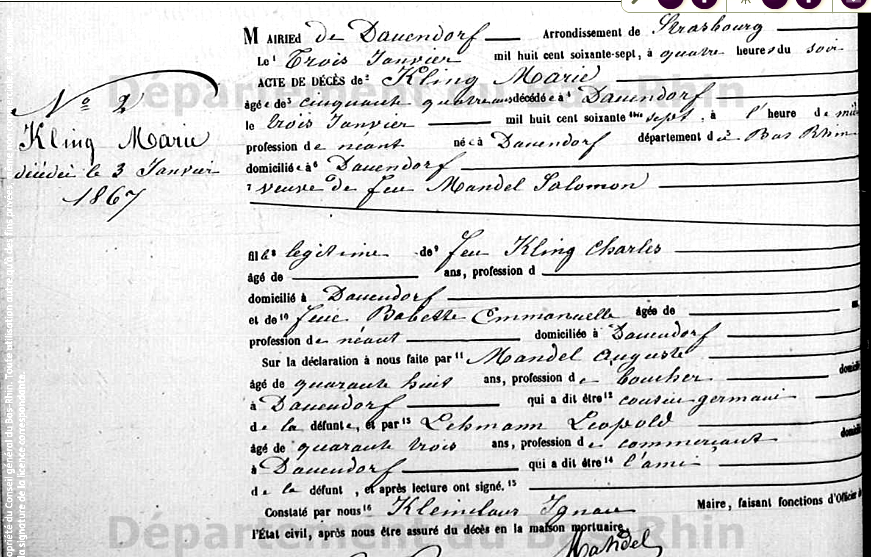 Mairie d de Dauendorf Arrondissement de Strasbourg
Le 1 Trois Janvier mil huit cent soixante-sept, à quatre heures du soir
ACTE DE DÉCÈS de 2 Kling Marie
âgée de 3 cinquante quatre ans décédée à 4 Dauendorf
le trois Janvier mil huit cent soixante sept, à l'heure de midi
profession de néant née à Dauendorf département du Bas Rhin
domiciliée à 6 Dauendorf
7 veuve de feu Mandel Salomon
N° 2
Kling Marie
décédée le 3 Janvier
1867
fille 8 légitime de 9 feu Kling Charles
âgé de ans, profession d
domicilié à Dauendorf
et de 10 feue Babette Emmanuelle âgée de
profession de néant domiciliée à Dauendorf
Sur la déclaration à nous faite par 11 Mandel Auguste
âgé de quarante huit ans, profession de boucher domicilié
à Dauendorf qui a dit être 12 cousin germain
de la défunte, et par 13 Lehmann Léopold
âgé de quarante trois ans, profession de commerçant domicilié
à Dauendorf qui a dit être 14 l'ami
de la défunt , et après lecture ont signé. 15
Constaté par nous 16 Ignace Maire, faisant fonctions d'Officier de
l'État civil, après nous être assuré du décès en la maison mortuaire.
Mandel
Département du Bas-Rhin
Département du Bas-Rhin
opriété du Conseil général du Bas-Rhin. Toute utilisation autre qu'à des fins privées
la signature de la licence correspondante.